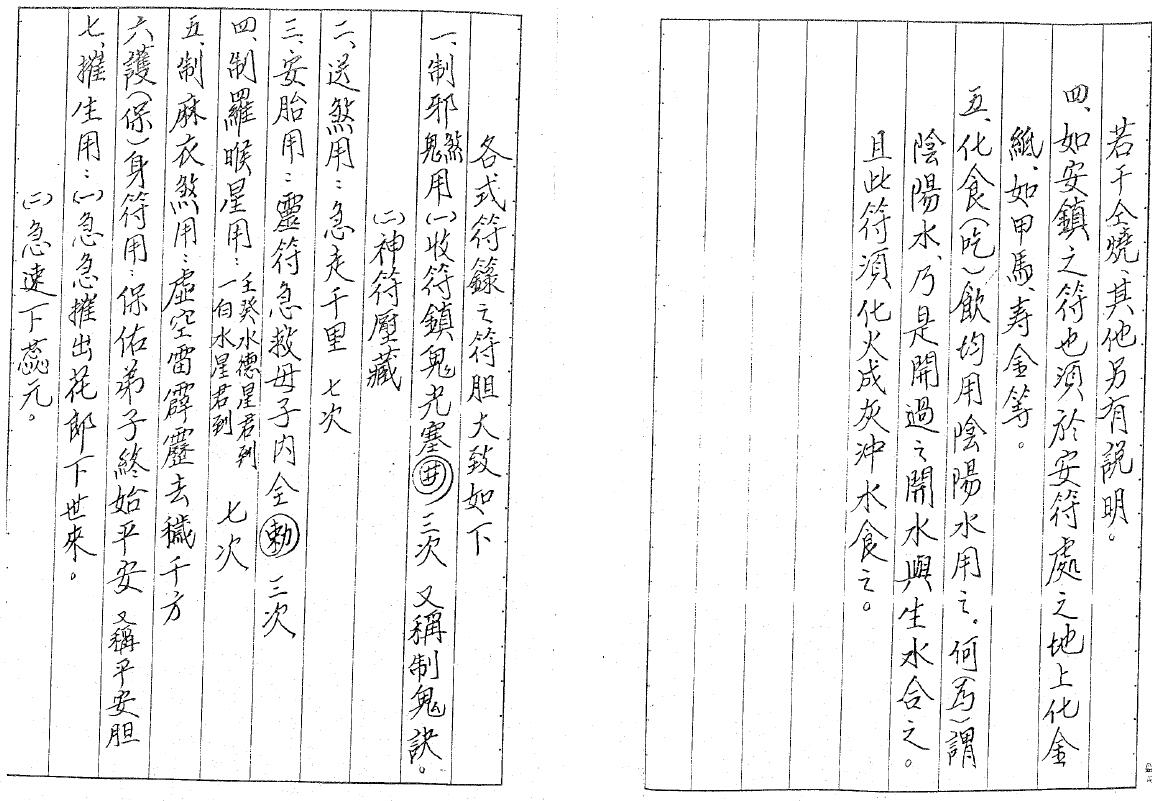 若干仝燒、其他另有説明。
四、如安鎮之符也須於安符處之地上化金
紙、如甲馬、寿金等。
五、化食(吃)飲均用陰陽水用之。何(為)謂
陰陽水、乃是開過之開水與生水合之。
且此符須化火成灰沖水食之。
各式符籙之符胆大致如下
一、制邪煞鬼用(一)收符鎮鬼尤塞井 三次 又稱制鬼訣。
(二)神符壓藏
二、送煞用：急走千里 七次
三、安胎用：靈符急救母子內全勅 三次
四、制羅睺星用：壬癸水德星君到 一白水星君到 七次
五、制麻衣煞用：虛空雷霹靂去穢千方
六、護(保)身符用：保佑弟子終始平安 又稱平安胆
七、摧生用：(一)急急摧出花郎下世來。
(二)急速下蕊元。